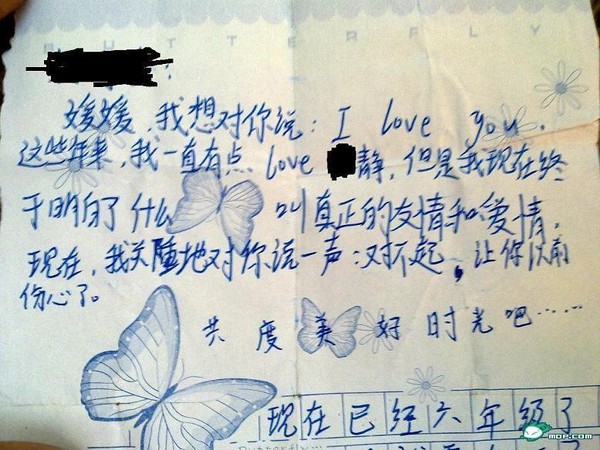 BUTTERFLY
媛媛，我想对你说：I love you.
这些年来，我一直有点 love 静，但是我现在终
于明白了什么叫真正的友情和爱情。
现在，我关隆地对你说一声：对不起，让你以前
伤心了。
共度美好时光吧……
现在已经六年级了
Butterfly...
MOP.COM